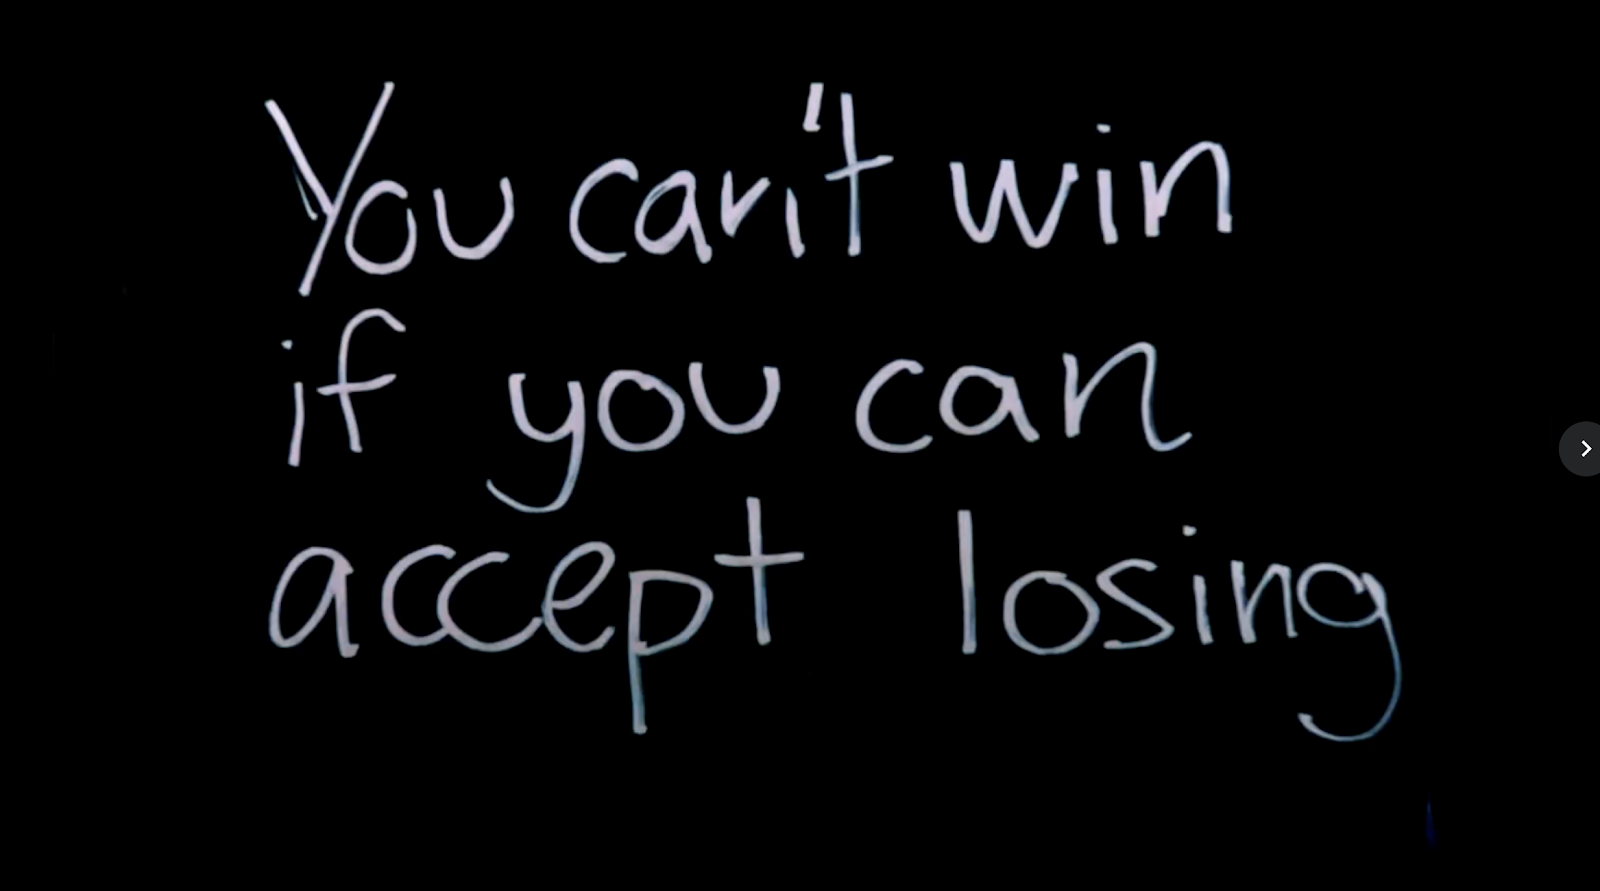 You can't win
if you can
accept losing